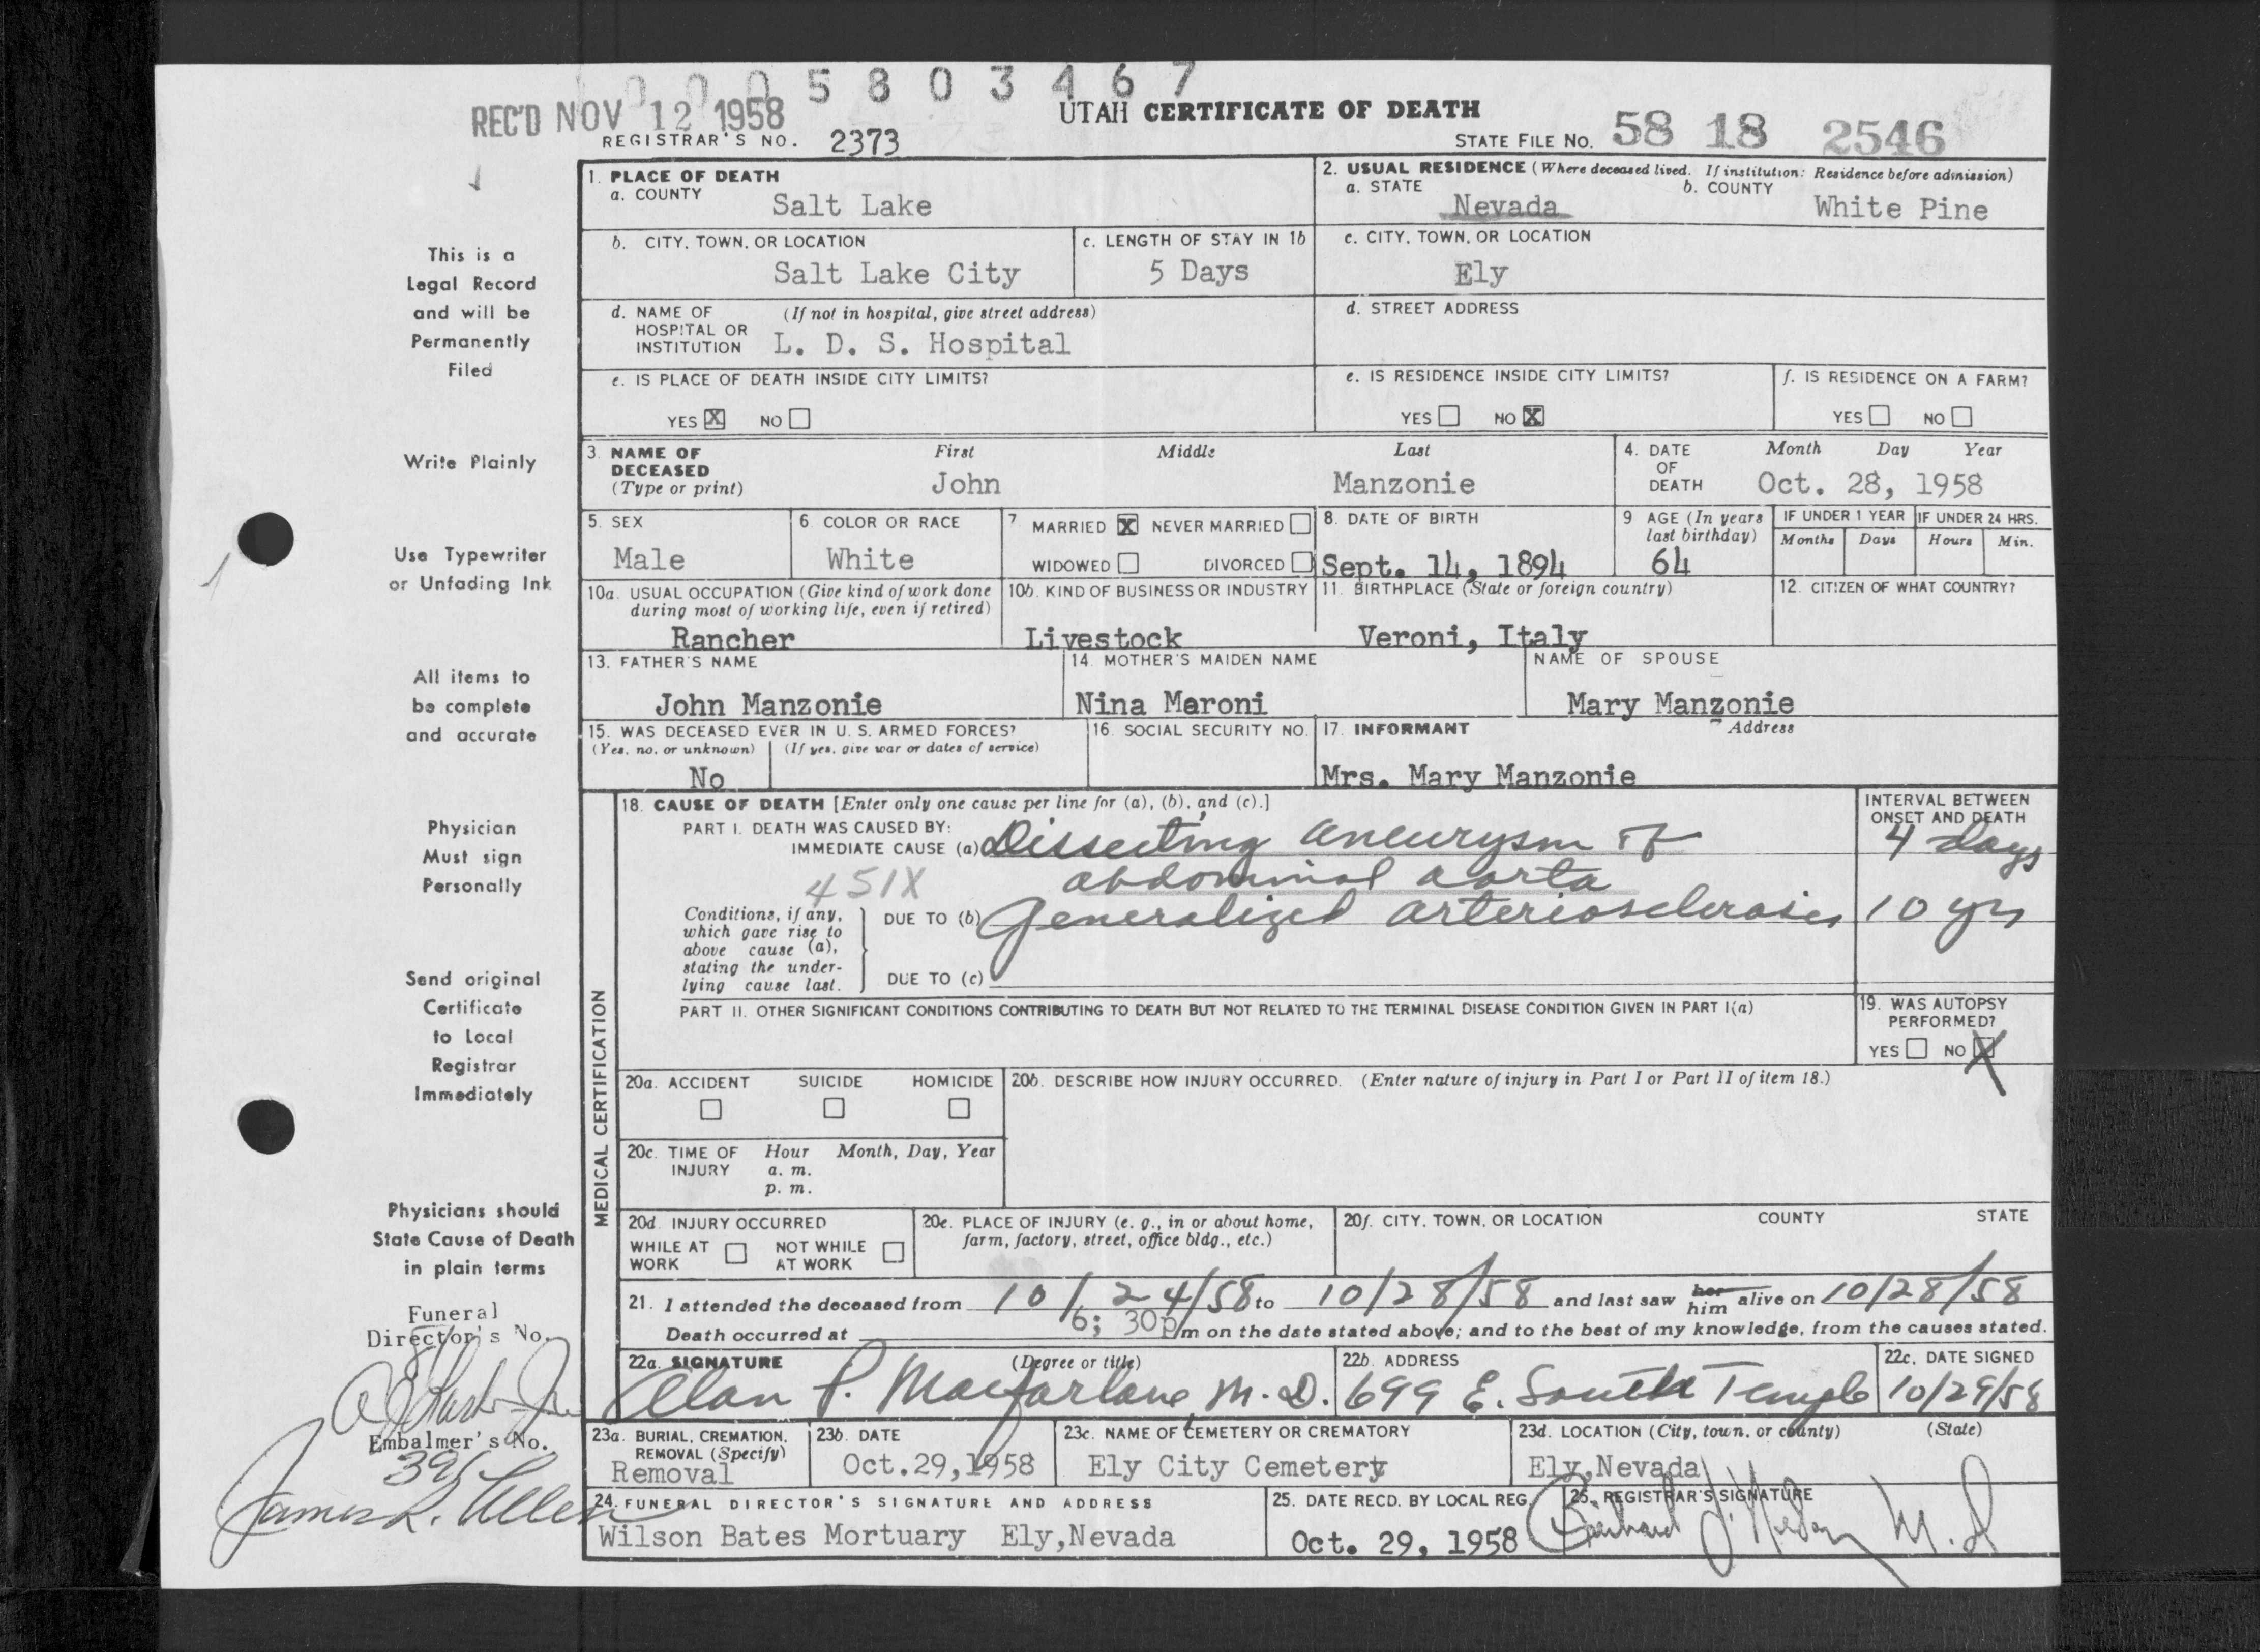 0005803467
REC'D NOV 12 1958
UTAH CERTIFICATE OF DEATH
REGISTRAR'S NO. 2373
STATE FILE NO. 58 18 2546
This is a
Legal Record
and will be
Permanently
Filed
Write Plainly
Use Typewriter
or Unfading Ink
All items to
be complete
and accurate
Physician
Must sign
Personally
Send original
Certificate
to Local
Registrar
Immediately
Physicians should
State Cause of Death
in plain terms
Funeral
Director's No.
Embalmer's No.
391
James R. Allen
1. PLACE OF DEATH
a. COUNTY Salt Lake
2. USUAL RESIDENCE (Where deceased lived. If institution: Residence before admission)
a. STATE Nevada b. COUNTY White Pine
b. CITY, TOWN, OR LOCATION Salt Lake City
c. LENGTH OF STAY IN 1b 5 Days
c. CITY, TOWN, OR LOCATION Ely
d. NAME OF HOSPITAL OR INSTITUTION (If not in hospital, give street address)
L. D. S. Hospital
d. STREET ADDRESS
e. IS PLACE OF DEATH INSIDE CITY LIMITS?
YES X NO
e. IS RESIDENCE INSIDE CITY LIMITS?
YES NO X
f. IS RESIDENCE ON A FARM?
YES NO
3. NAME OF DECEASED (Type or print)
First Middle Last
John Manzonie
4. DATE OF DEATH Month Day Year
Oct. 28, 1958
5. SEX Male
6. COLOR OR RACE White
7. MARRIED X NEVER MARRIED
WIDOWED DIVORCED
8. DATE OF BIRTH Sept. 14, 1894
9 AGE (In years last birthday) 64
IF UNDER 1 YEAR Months Days
IF UNDER 24 HRS. Hours Min.
10a. USUAL OCCUPATION (Give kind of work done during most of working life, even if retired)
Rancher
10b. KIND OF BUSINESS OR INDUSTRY
Livestock
11. BIRTHPLACE (State or foreign country)
Veroni, Italy
12. CITIZEN OF WHAT COUNTRY?
13. FATHER'S NAME
John Manzonie
14. MOTHER'S MAIDEN NAME
Nina Meroni
NAME OF SPOUSE
Mary Manzonie
15. WAS DECEASED EVER IN U. S. ARMED FORCES?
(Yes, no, or unknown) (If yes, give war or dates of service)
No
16. SOCIAL SECURITY NO.
17. INFORMANT Address
Mrs. Mary Manzonie
MEDICAL CERTIFICATION
18. CAUSE OF DEATH [Enter only one cause per line for (a), (b), and (c).]
PART I. DEATH WAS CAUSED BY:
IMMEDIATE CAUSE (a) Dissecting aneurysm of
abdominal aorta
451X
INTERVAL BETWEEN ONSET AND DEATH
4 days
Conditions, if any, which gave rise to above cause (a), stating the underlying cause last.
DUE TO (b) Generalized arteriosclerosis 10 yrs
DUE TO (c)
PART II. OTHER SIGNIFICANT CONDITIONS CONTRIBUTING TO DEATH BUT NOT RELATED TO THE TERMINAL DISEASE CONDITION GIVEN IN PART I(a)
19. WAS AUTOPSY PERFORMED?
YES NO X
20a. ACCIDENT SUICIDE HOMICIDE
20b. DESCRIBE HOW INJURY OCCURRED. (Enter nature of injury in Part I or Part II of item 18.)
20c. TIME OF INJURY Hour Month, Day, Year
a. m.
p. m.
20d. INJURY OCCURRED
WHILE AT WORK NOT WHILE AT WORK
20e. PLACE OF INJURY (e. g., in or about home, farm, factory, street, office bldg., etc.)
20f. CITY, TOWN, OR LOCATION COUNTY STATE
21. I attended the deceased from 10/24/58 to 10/28/58 and last saw her him alive on 10/28/58
Death occurred at 6; 30p m on the date stated above; and to the best of my knowledge, from the causes stated.
22a. SIGNATURE (Degree or title)
Alan P. Macfarlane, M.D.
22b. ADDRESS
699 E. South Temple
22c. DATE SIGNED
10/29/58
23a. BURIAL, CREMATION, REMOVAL (Specify)
Removal
23b. DATE
Oct.29,1958
23c. NAME OF CEMETERY OR CREMATORY
Ely City Cemetery
23d. LOCATION (City, town, or county) (State)
Ely,Nevada
24. FUNERAL DIRECTOR'S SIGNATURE AND ADDRESS
Wilson Bates Mortuary Ely,Nevada
25. DATE RECD. BY LOCAL REG.
Oct. 29, 1958
26. REGISTRAR'S SIGNATURE
M.D